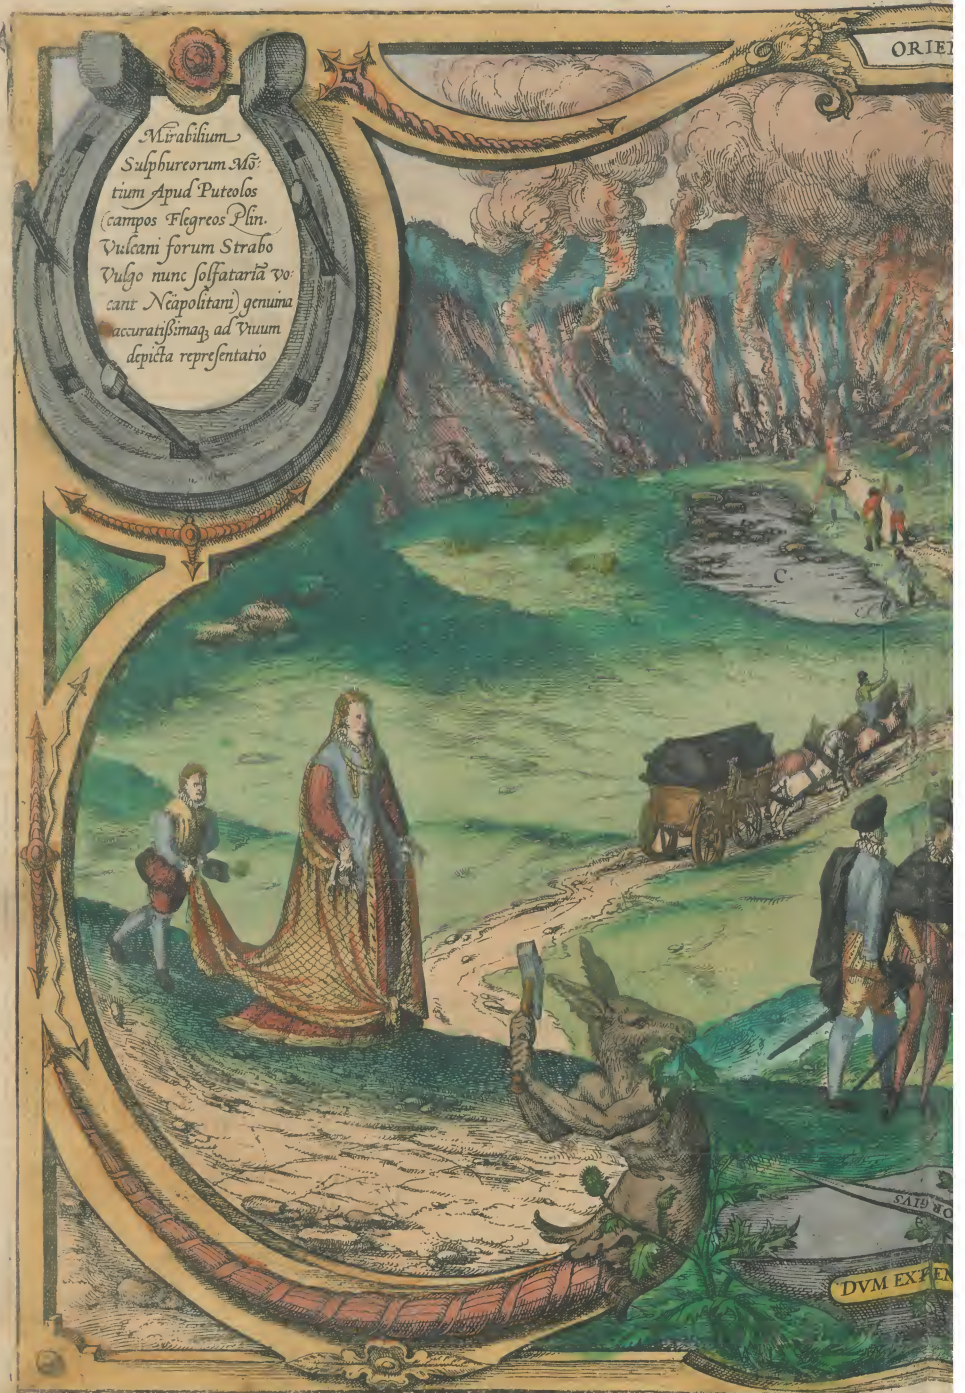 Mirabilium
Sulphureorum Mō:
tium Apud Puteolos
(campos Flegreos Plin.
Vulcani forum Strabo
Vulgo nunc solfatariā vo:
cant Neapolitani) genuina
accuratißimaq; ad Viuum
depicta repræsentatio
ORIE
C.
ORGIVS
DVM EXTEN